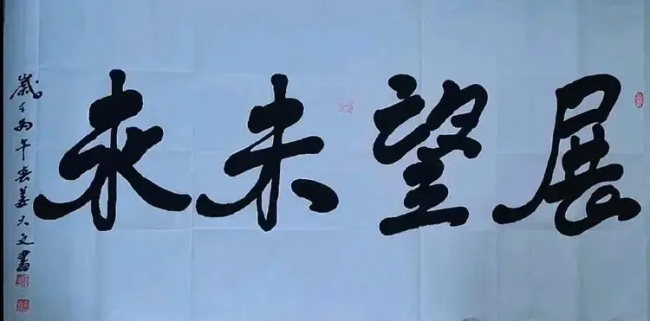 展望未来
岁在丙午春姜大文书